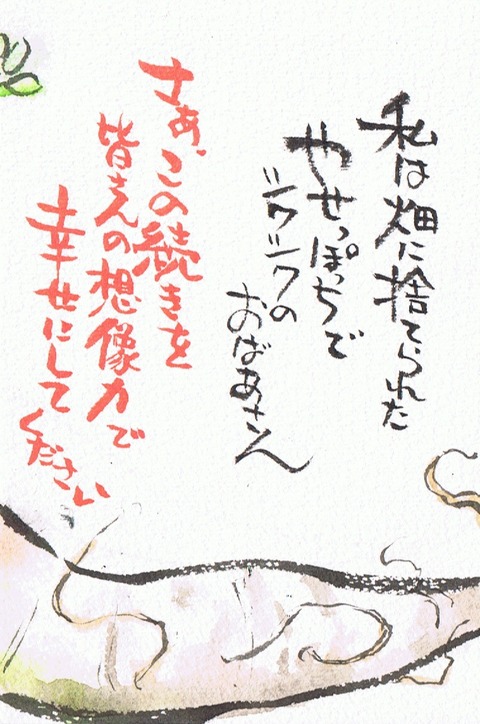 私は畑に捨てられた
やせっぽっちで
シワシワの
おばあさん
さあ、この続きを
皆さんの想像力で
幸せにして
ください